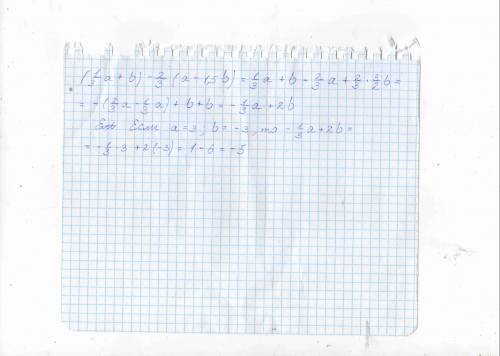 (1/3 a + b) - 2/3 (a - 1,5b) = 1/3 a + b - 2/3 a + 2/3 · 3/2 b =
= -(2/3 a - 1/3 a) + b + b = - 1/3 a + 2b
Если a = 3, b = -3, то - 1/3 a + 2b =
= - 1/3 · 3 + 2(-3) = 1 - 6 = -5